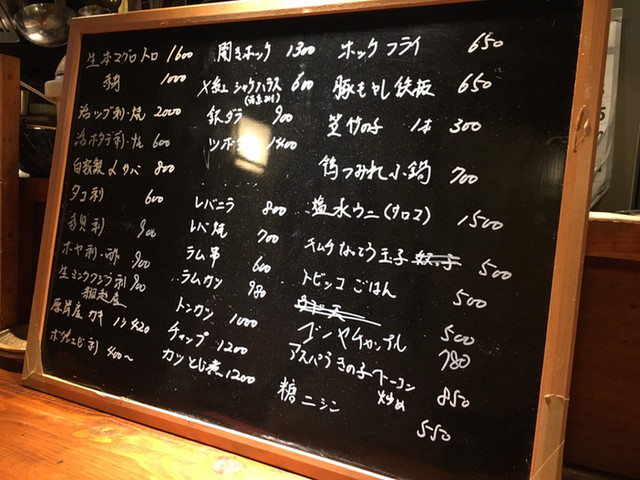 生本マグロトロ 1600
1000
活ツブ刺・焼 2000
活ホタテ刺・焼 600
自家製〆サバ 800
タコ刺 600
貝刺 900
ホヤ刺・酢 900
生ミンククジラ刺 900
厚岸産カキ 1ケ420
刺 400〜
開きホッケ 1300
シャケハラス 600
銀ダラ 900
ツボ 1400
レバニラ 800
レバ焼 700
ラム串 600
ラムカツ 980
トンカツ 1000
チャップ 1200
カツとじ煮 1200
糖ニシン
ホッケフライ 650
豚もやし鉄板 650
笠竹の子 1本 300
鴨つみれ小鍋 700
塩水ウニ(ウロコ) 1500
キムチなっとう玉子 500
トビッコごはん 500
ゴーヤチャンプル 500
780
アスパラきの子ベーコン
炒め 850
550